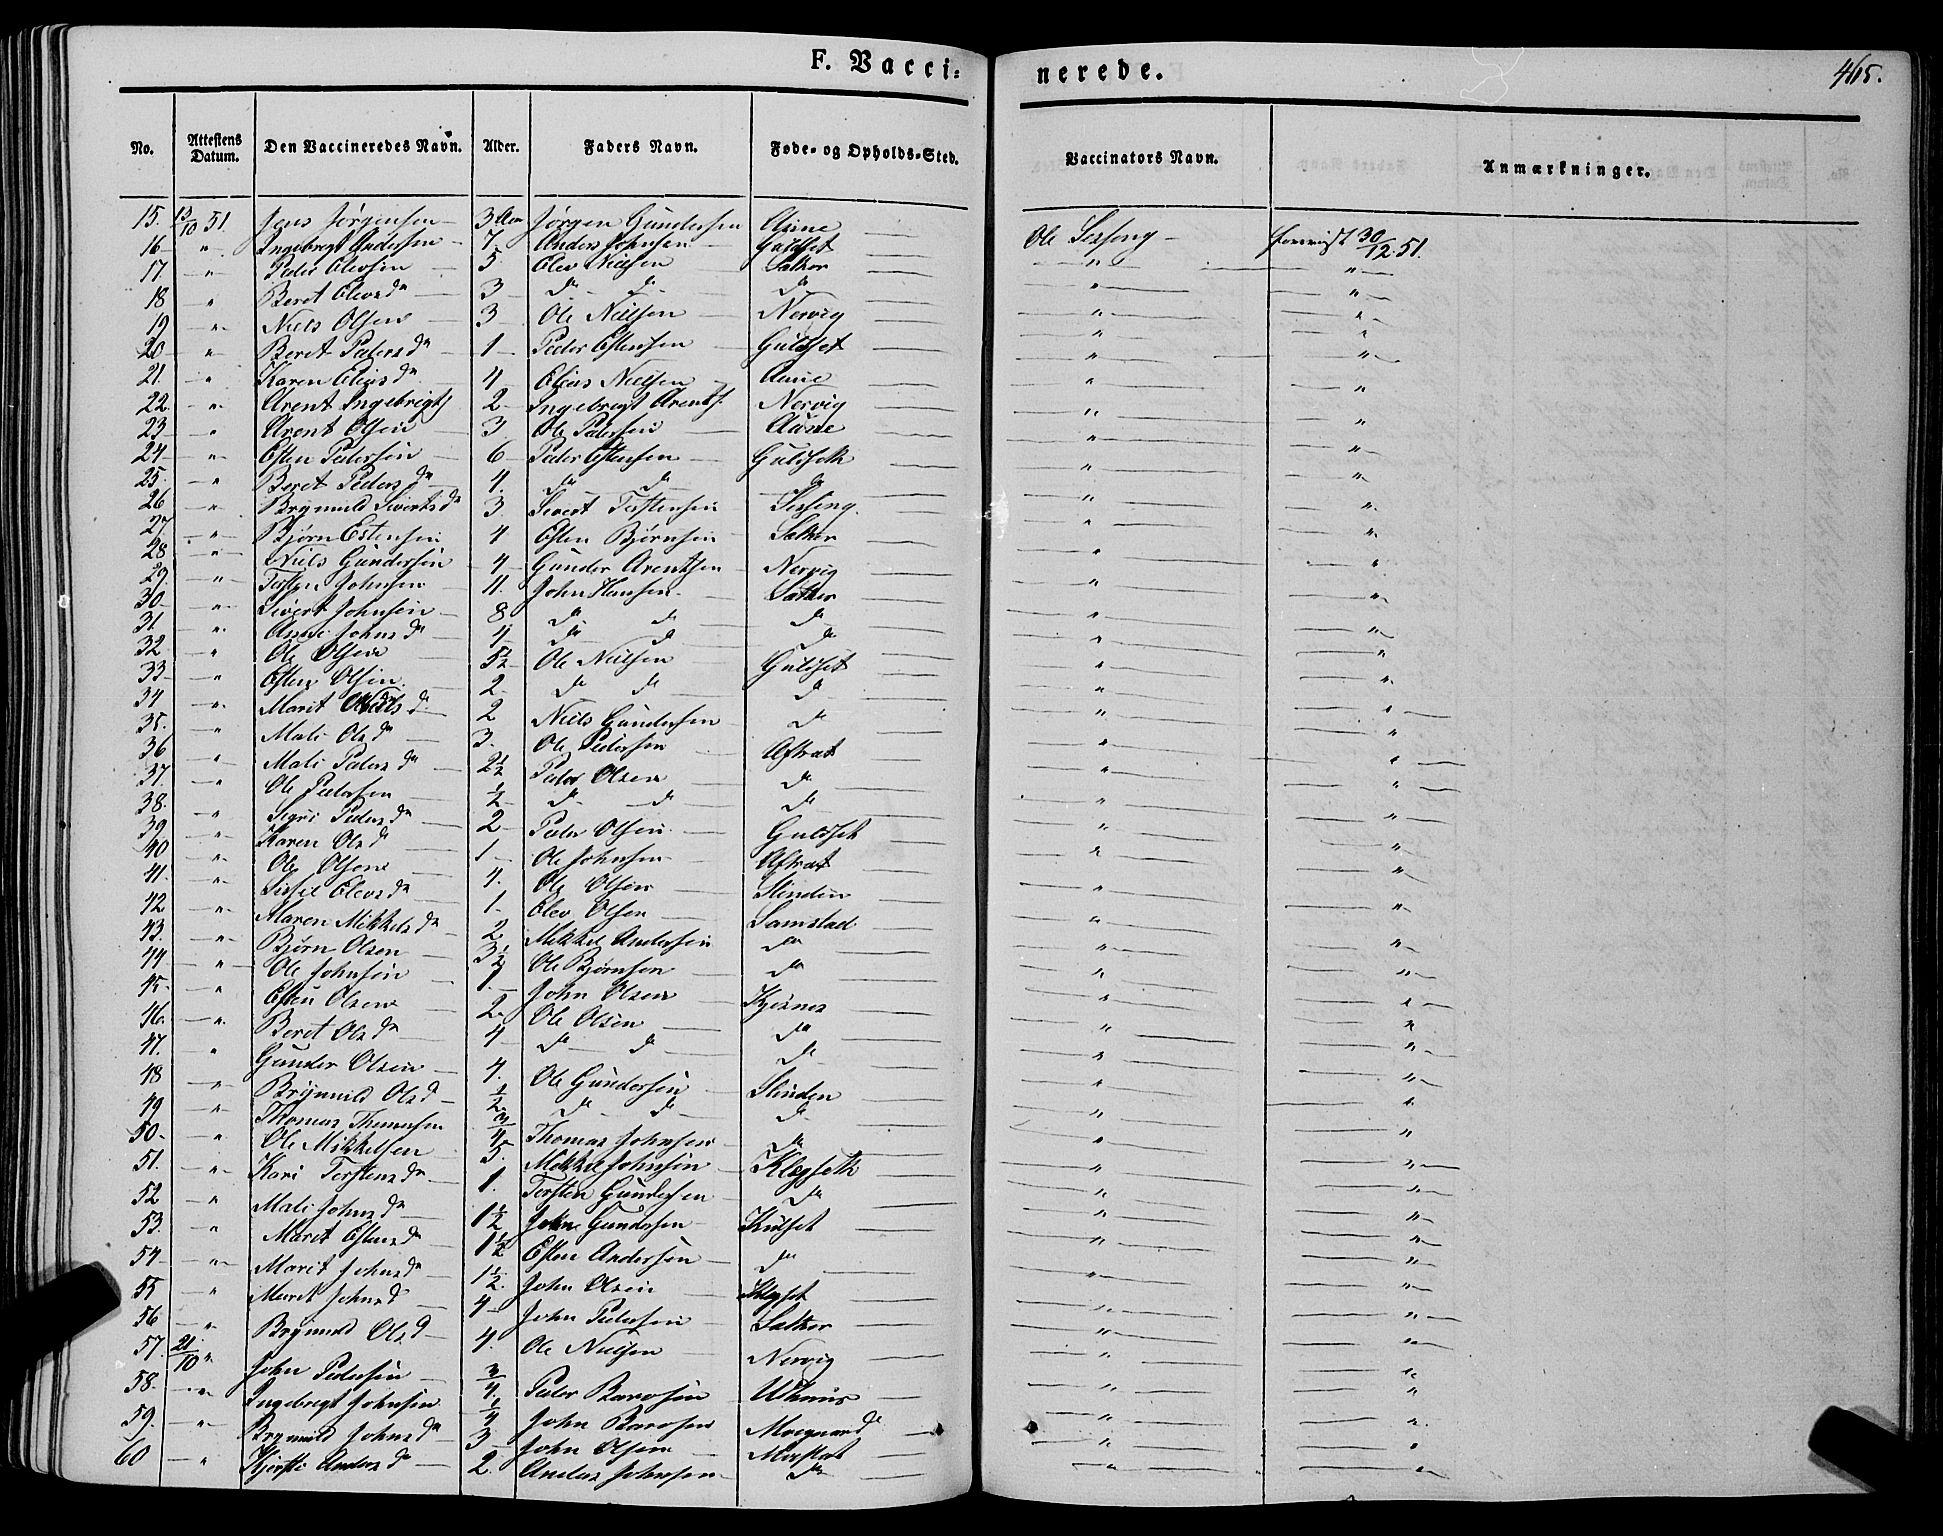 F. Vacci= nerede. 465.
No. Attestens Datum. Den Vaccineredes Navn. Alder. Faders Navn. Føde- og Opholds-Sted. Vaccinators Navn. Anmærkninger.
15. 13/10 51. Jens Jørgensen 3 Aar Jørgen Gundersen Aune Ole Sesseng 30/12 51.
16 " Ingebregt Andersen 7. Anders Johnsen Guldset " "
17. " Peder Elevsen 5. Elev Nielsen Sæther " "
18 " Beret Elevsdr 3 do do do " "
19 " Niels Olsen 3 Ole Nielsen Nervig " "
20 " Beret Pedersdr 1 Peder Estensen Guldset " "
21. " Karen Eliasdr 4 Elias Nielsen Aune " "
22. " Arent Ingebrigts 2 Ingebregt Arents. Nervig " "
23 " Arent Olsen 3 Ole Pedersen Aune " "
24 " Esten Pedersen 6 Peder Estensen Guldseth " "
25. " Beret Pedersdr 4. do do do " "
26 " Brynnild Sivertsdr 3. Sivert Torstensen Sesseng. " "
27 " Bjørn Estensen 4 Esten Bjørnsen Sæther " "
28 " Niels Gundersen 4 Gunder Arentsen Nervig " "
29. " Torsten Johnsen 11. John Hansen Sæther " "
30 " Sivert Johnsen 8 do do do " "
31 " Anne Johnsdr 4 do do do " "
32 " Ole Olsen Ole Nielsen Guldset " "
33 " Esten Olsen 2 do do do " "
34 " Marit Nielsdr 2 Niels Gundersen do " "
35. " Mali Olsdr 3. Ole Pedersen Aftrat " "
36 " Mali Pedersdr 2 1/2 Peder Olsen do " "
37. " Ole Pedersen 1/2 do do do " "
38. " Sigri Pedersdr 2 Peder Olsen Guldset " "
39. " Karen Olsd 1 Ole Johnsen Aftrat " "
40 " Ole Olsen 4. Ole Olsen Slinden " "
41. " Sissel Elevsdr 1. Elev Olsen Samstad " "
42 " Maren Mikkelsdr 2 Mikkel Andersen do " "
43. " Bjørn Olsen 3 1/2 Ole Bjørnsen do " "
44 " Ole Johnsen 1. John Olsen Kjesnes " "
45 " Esten Olsen 2 Ole Olsen do " "
46. " Beret Olsdr 4 do do do " "
47. " Gunder Olsen 4. Ole Gundersen Slinden " "
48 " Brynnild Olsd 1/2 do do do " "
49 " Thomas Thomassen 3/4 Thomas Johnsen do " "
50. " Ole Mikkelsen 5. Mikkel Johnsen Klegseth " "
51. " Kari Torstensdr 1. Torsten Gundersen do " "
52 " Mali Johnsdr 1 1/2 John Gundersen Kulset " "
53. " Marit Estensdr 1 1/2 Esten Andersen do " "
54 " Marit Johnsdr 1 1/2 John Olsen Klegset " "
55 " Marit Johnsd 4 John Pedersen Sæther " "
56 " Brynnild Olsd 4. Ole Nielsen Nervig " "
57. 21/10 " John Pedersen 3/4 Peder Barosen Uthuus " "
58. " Ingebregt Johnsen 1/4 John Barosen " "
59. " Brynnild Johnsdr 3 John Olsen " "
60 " Kjersti Andersdr 2. Anders Johnsen do " "